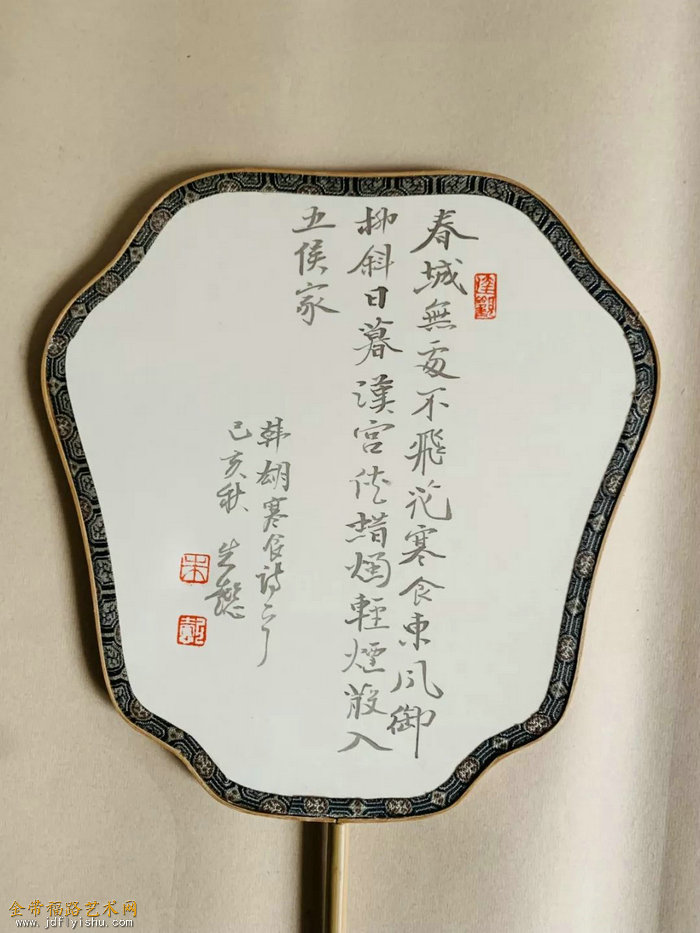 春城無處不飛花寒食東風御
柳斜日暮漢宮传蜡燭輕煙散入
五侯家
韩翃寒食诗
己亥秋
朱
金带福路艺术网
www.jdflyishu.com